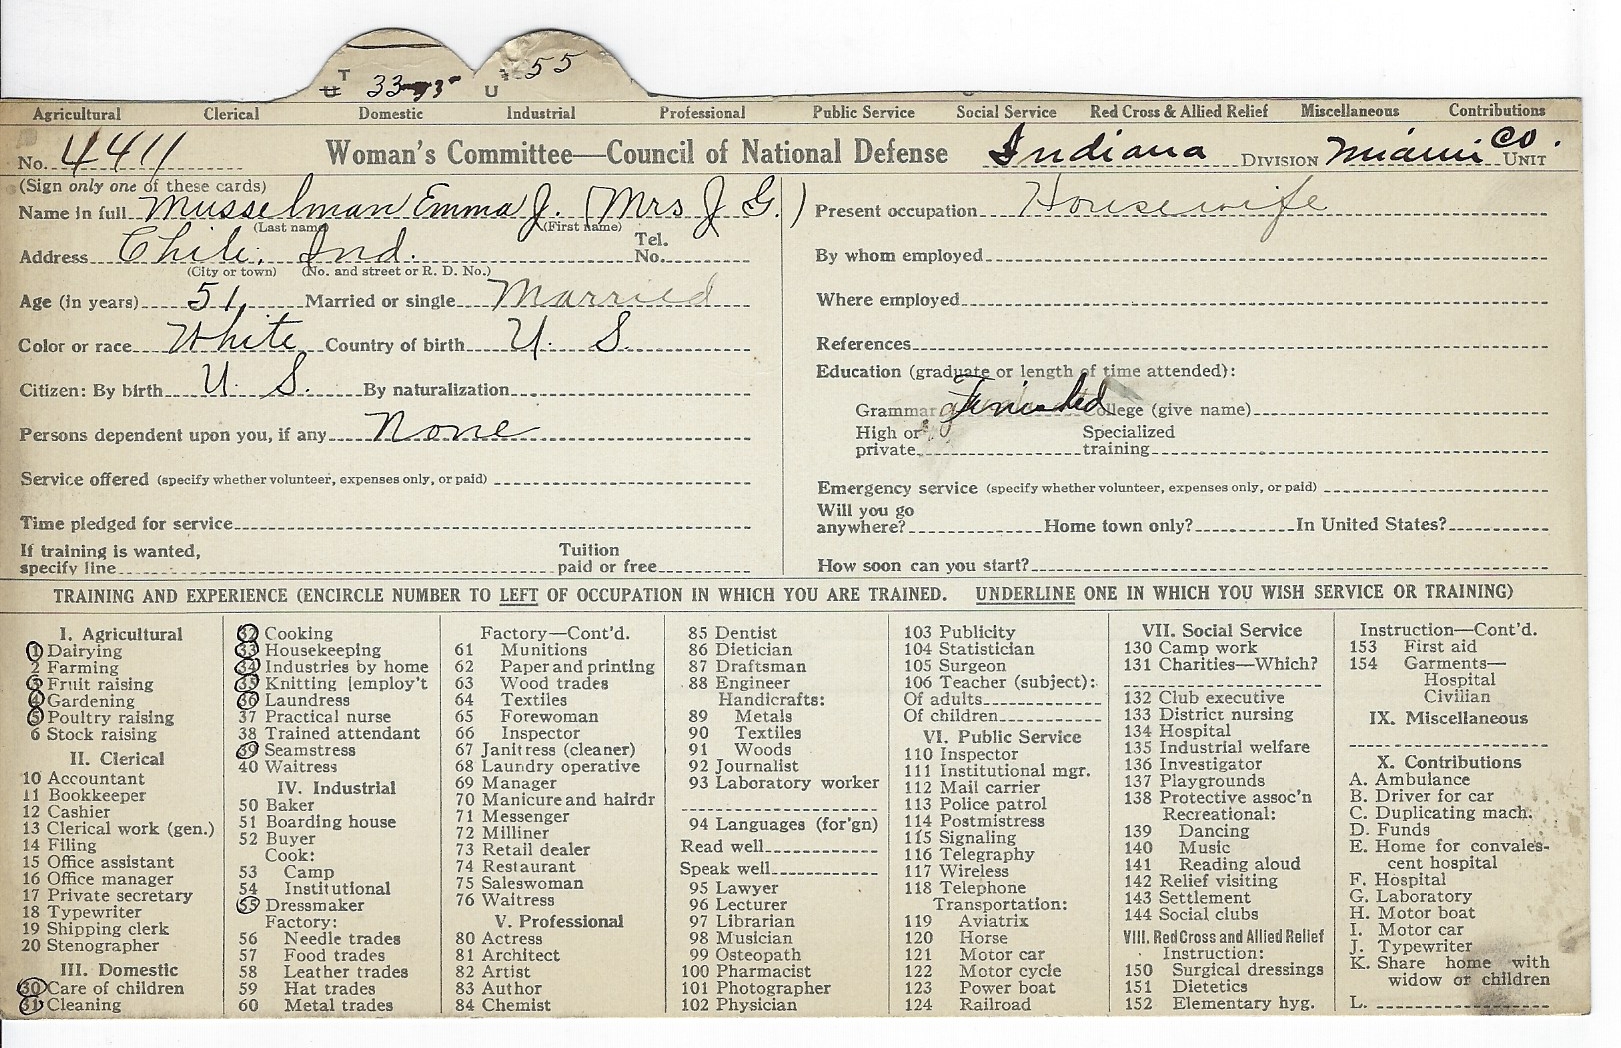 T U 33 U 55
Agricultural Clerical Domestic Industrial Professional Public Service Social Service Red Cross & Allied Relief Miscellaneous Contributions
No. 4411 Woman's Committee—Council of National Defense Indiana DIVISION Miami Co. UNIT
(Sign only one of these cards)
Name in full Musselman Emma J. (Mrs J G.)
(Last name) (First name)
Address Chili, Ind. Tel. No.
(City or town) (No. and street or R. D. No.)
Age (in years) 51 Married or single Married
Color or race White Country of birth U. S.
Citizen: By birth U. S. By naturalization
Persons dependent upon you, if any None
Service offered (specify whether volunteer, expenses only, or paid)
Time pledged for service
If training is wanted, specify line Tuition paid or free
Present occupation Housewife
By whom employed
Where employed
References
Education (graduate or length of time attended):
Grammar Finished College (give name)
High or private Specialized training
Emergency service (specify whether volunteer, expenses only, or paid)
Will you go anywhere? Home town only? In United States?
How soon can you start?
TRAINING AND EXPERIENCE (ENCIRCLE NUMBER TO LEFT OF OCCUPATION IN WHICH YOU ARE TRAINED. UNDERLINE ONE IN WHICH YOU WISH SERVICE OR TRAINING)
I. Agricultural
1 Dairying
2 Farming
3 Fruit raising
4 Gardening
5 Poultry raising
6 Stock raising
II. Clerical
10 Accountant
11 Bookkeeper
12 Cashier
13 Clerical work (gen.)
14 Filing
15 Office assistant
16 Office manager
17 Private secretary
18 Typewriter
19 Shipping clerk
20 Stenographer
III. Domestic
30 Care of children
31 Cleaning
32 Cooking
33 Housekeeping
34 Industries by home
35 Knitting [employ't
36 Laundress
37 Practical nurse
38 Trained attendant
39 Seamstress
40 Waitress
IV. Industrial
50 Baker
51 Boarding house
52 Buyer
Cook:
53 Camp
54 Institutional
55 Dressmaker
Factory:
56 Needle trades
57 Food trades
58 Leather trades
59 Hat trades
60 Metal trades
Factory—Cont'd.
61 Munitions
62 Paper and printing
63 Wood trades
64 Textiles
65 Forewoman
66 Inspector
67 Janitress (cleaner)
68 Laundry operative
69 Manager
70 Manicure and hairdr
71 Messenger
72 Milliner
73 Retail dealer
74 Restaurant
75 Saleswoman
76 Waitress
V. Professional
80 Actress
81 Architect
82 Artist
83 Author
84 Chemist
85 Dentist
86 Dietician
87 Draftsman
88 Engineer
Handicrafts:
89 Metals
90 Textiles
91 Woods
92 Journalist
93 Laboratory worker
94 Languages (for'gn)
Read well
Speak well
95 Lawyer
96 Lecturer
97 Librarian
98 Musician
99 Osteopath
100 Pharmacist
101 Photographer
102 Physician
103 Publicity
104 Statistician
105 Surgeon
106 Teacher (subject):
Of adults
Of children
VI. Public Service
110 Inspector
111 Institutional mgr.
112 Mail carrier
113 Police patrol
114 Postmistress
115 Signaling
116 Telegraphy
117 Wireless
118 Telephone
Transportation:
119 Aviatrix
120 Horse
121 Motor car
122 Motor cycle
123 Power boat
124 Railroad
VII. Social Service
130 Camp work
131 Charities—Which?
132 Club executive
133 District nursing
134 Hospital
135 Industrial welfare
136 Investigator
137 Playgrounds
138 Protective assoc'n
Recreational:
139 Dancing
140 Music
141 Reading aloud
142 Relief visiting
143 Settlement
144 Social clubs
VIII. Red Cross and Allied Relief
Instruction:
150 Surgical dressings
151 Dietetics
152 Elementary hyg.
Instruction—Cont'd.
153 First aid
154 Garments—
Hospital
Civilian
IX. Miscellaneous
X. Contributions
A. Ambulance
B. Driver for car
C. Duplicating mach.
D. Funds
E. Home for convales-
cent hospital
F. Hospital
G. Laboratory
H. Motor boat
I. Motor car
J. Typewriter
K. Share home with
widow or children
L.